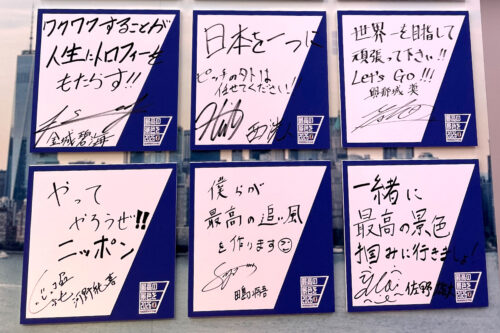 ワクワクすることが
人生にトロフィーを
もたらす!!
金城碧海
日本を一つに
ピッチの外は
任せてください!
世界一を目指して
頑張って下さい!!
Let's Go!!!
與那城 奨
やって
やろうぜ!!
ニッポン
河野純喜
僕らが
最高の追い風
を作ります
一緒に
最高の景色
掴みに行きましょ!
佐野